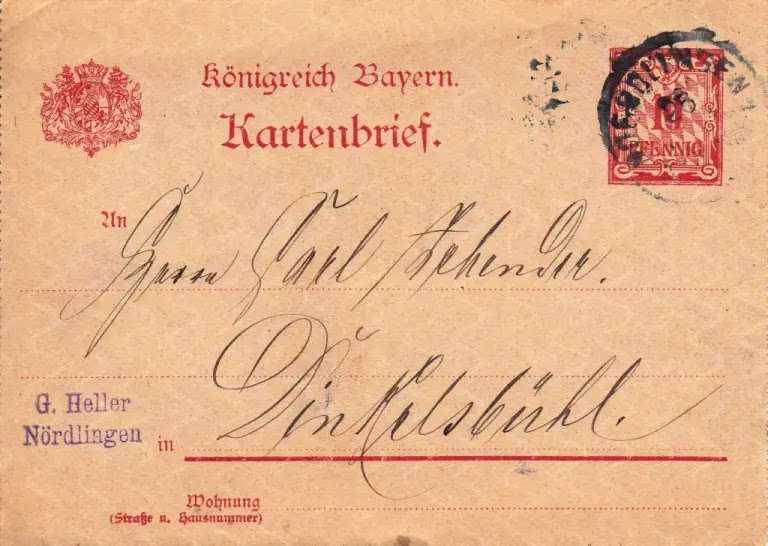 Königreich Bayern.
Kartenbrief.
10
PFENNIG
NOERDLINGEN
An
Herrn Carl
Dinkelsbühl.
G. Heller
Nördlingen
in
Wohnung
(Straße u. Hausnummer)